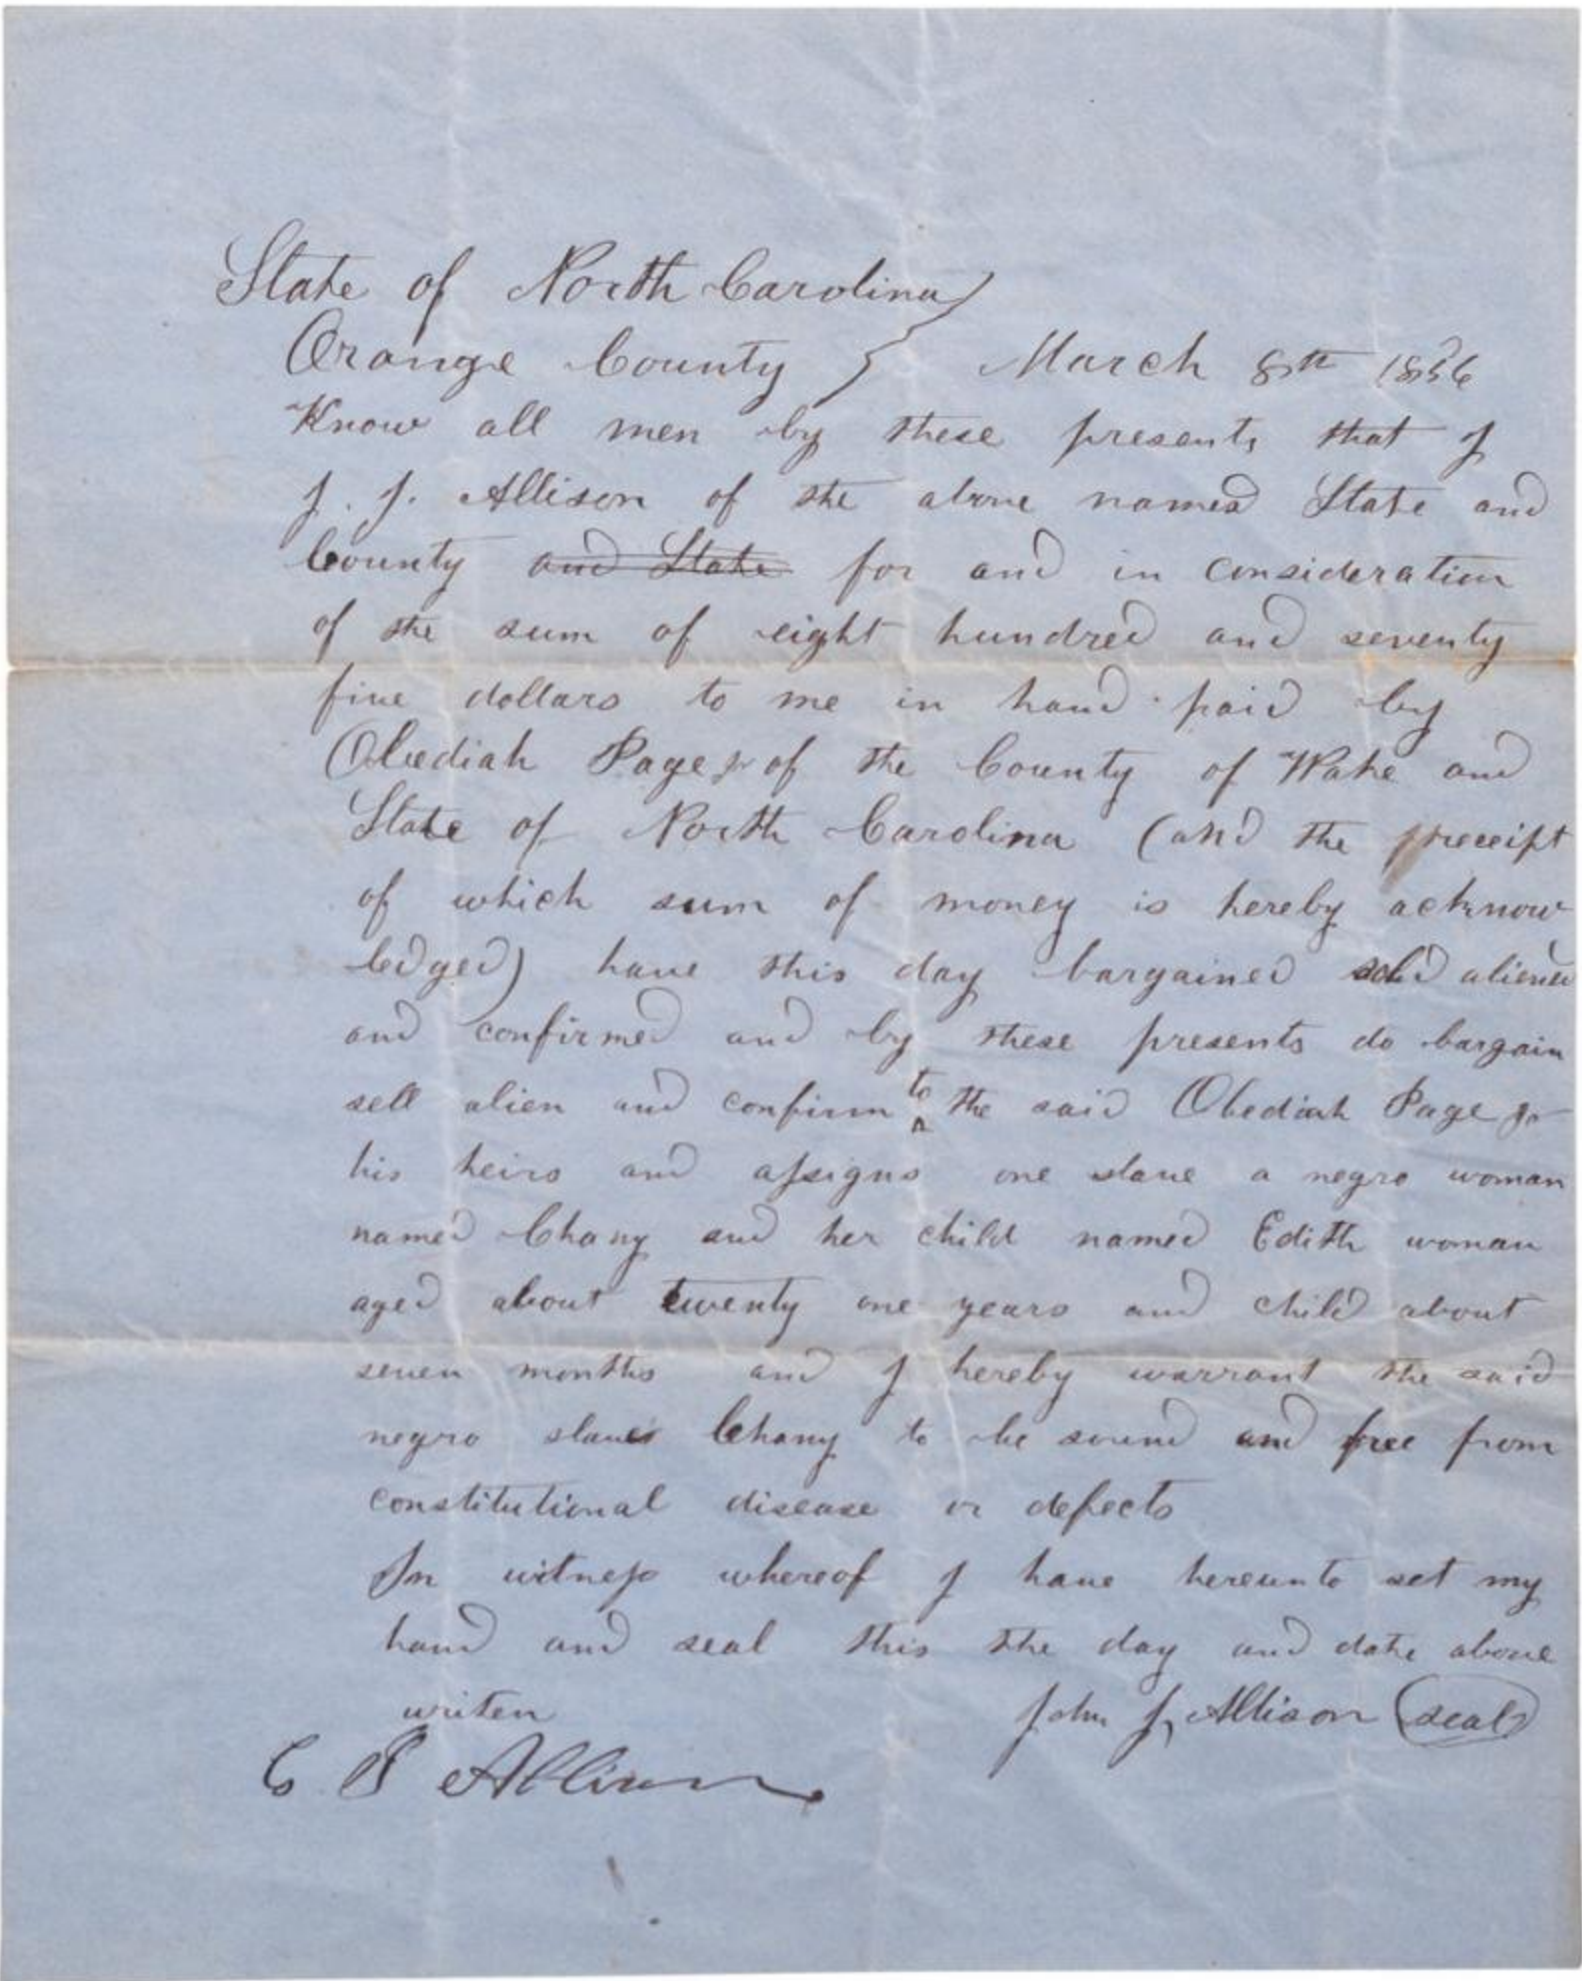 State of North Carolina
Orange County } March 8th 1856
Know all men by these presents that I
J. J. Allison of the above named State and
County and State for and in consideration
of the sum of eight hundred and seventy
five dollars to me in hand paid by
Obediah Page Jr of the County of Wake and
State of North Carolina (and the receipt
of which sum of money is hereby acknow
ledged) have this day bargained sold aliened
and confirmed and by these presents do bargain
sell alien and confirm to the said Obediah Page Jr
his heirs and assigns one slave a negro woman
named Chany and her child named Edith woman
aged about twenty one years and child about
seven months and I hereby warrant the said
negro slaves Chany to be sound and free from
constitutional disease or defects
In witness whereof I have hereunto set my
hand and seal this the day and date above
writen John J. Allison (seal)
C Allison